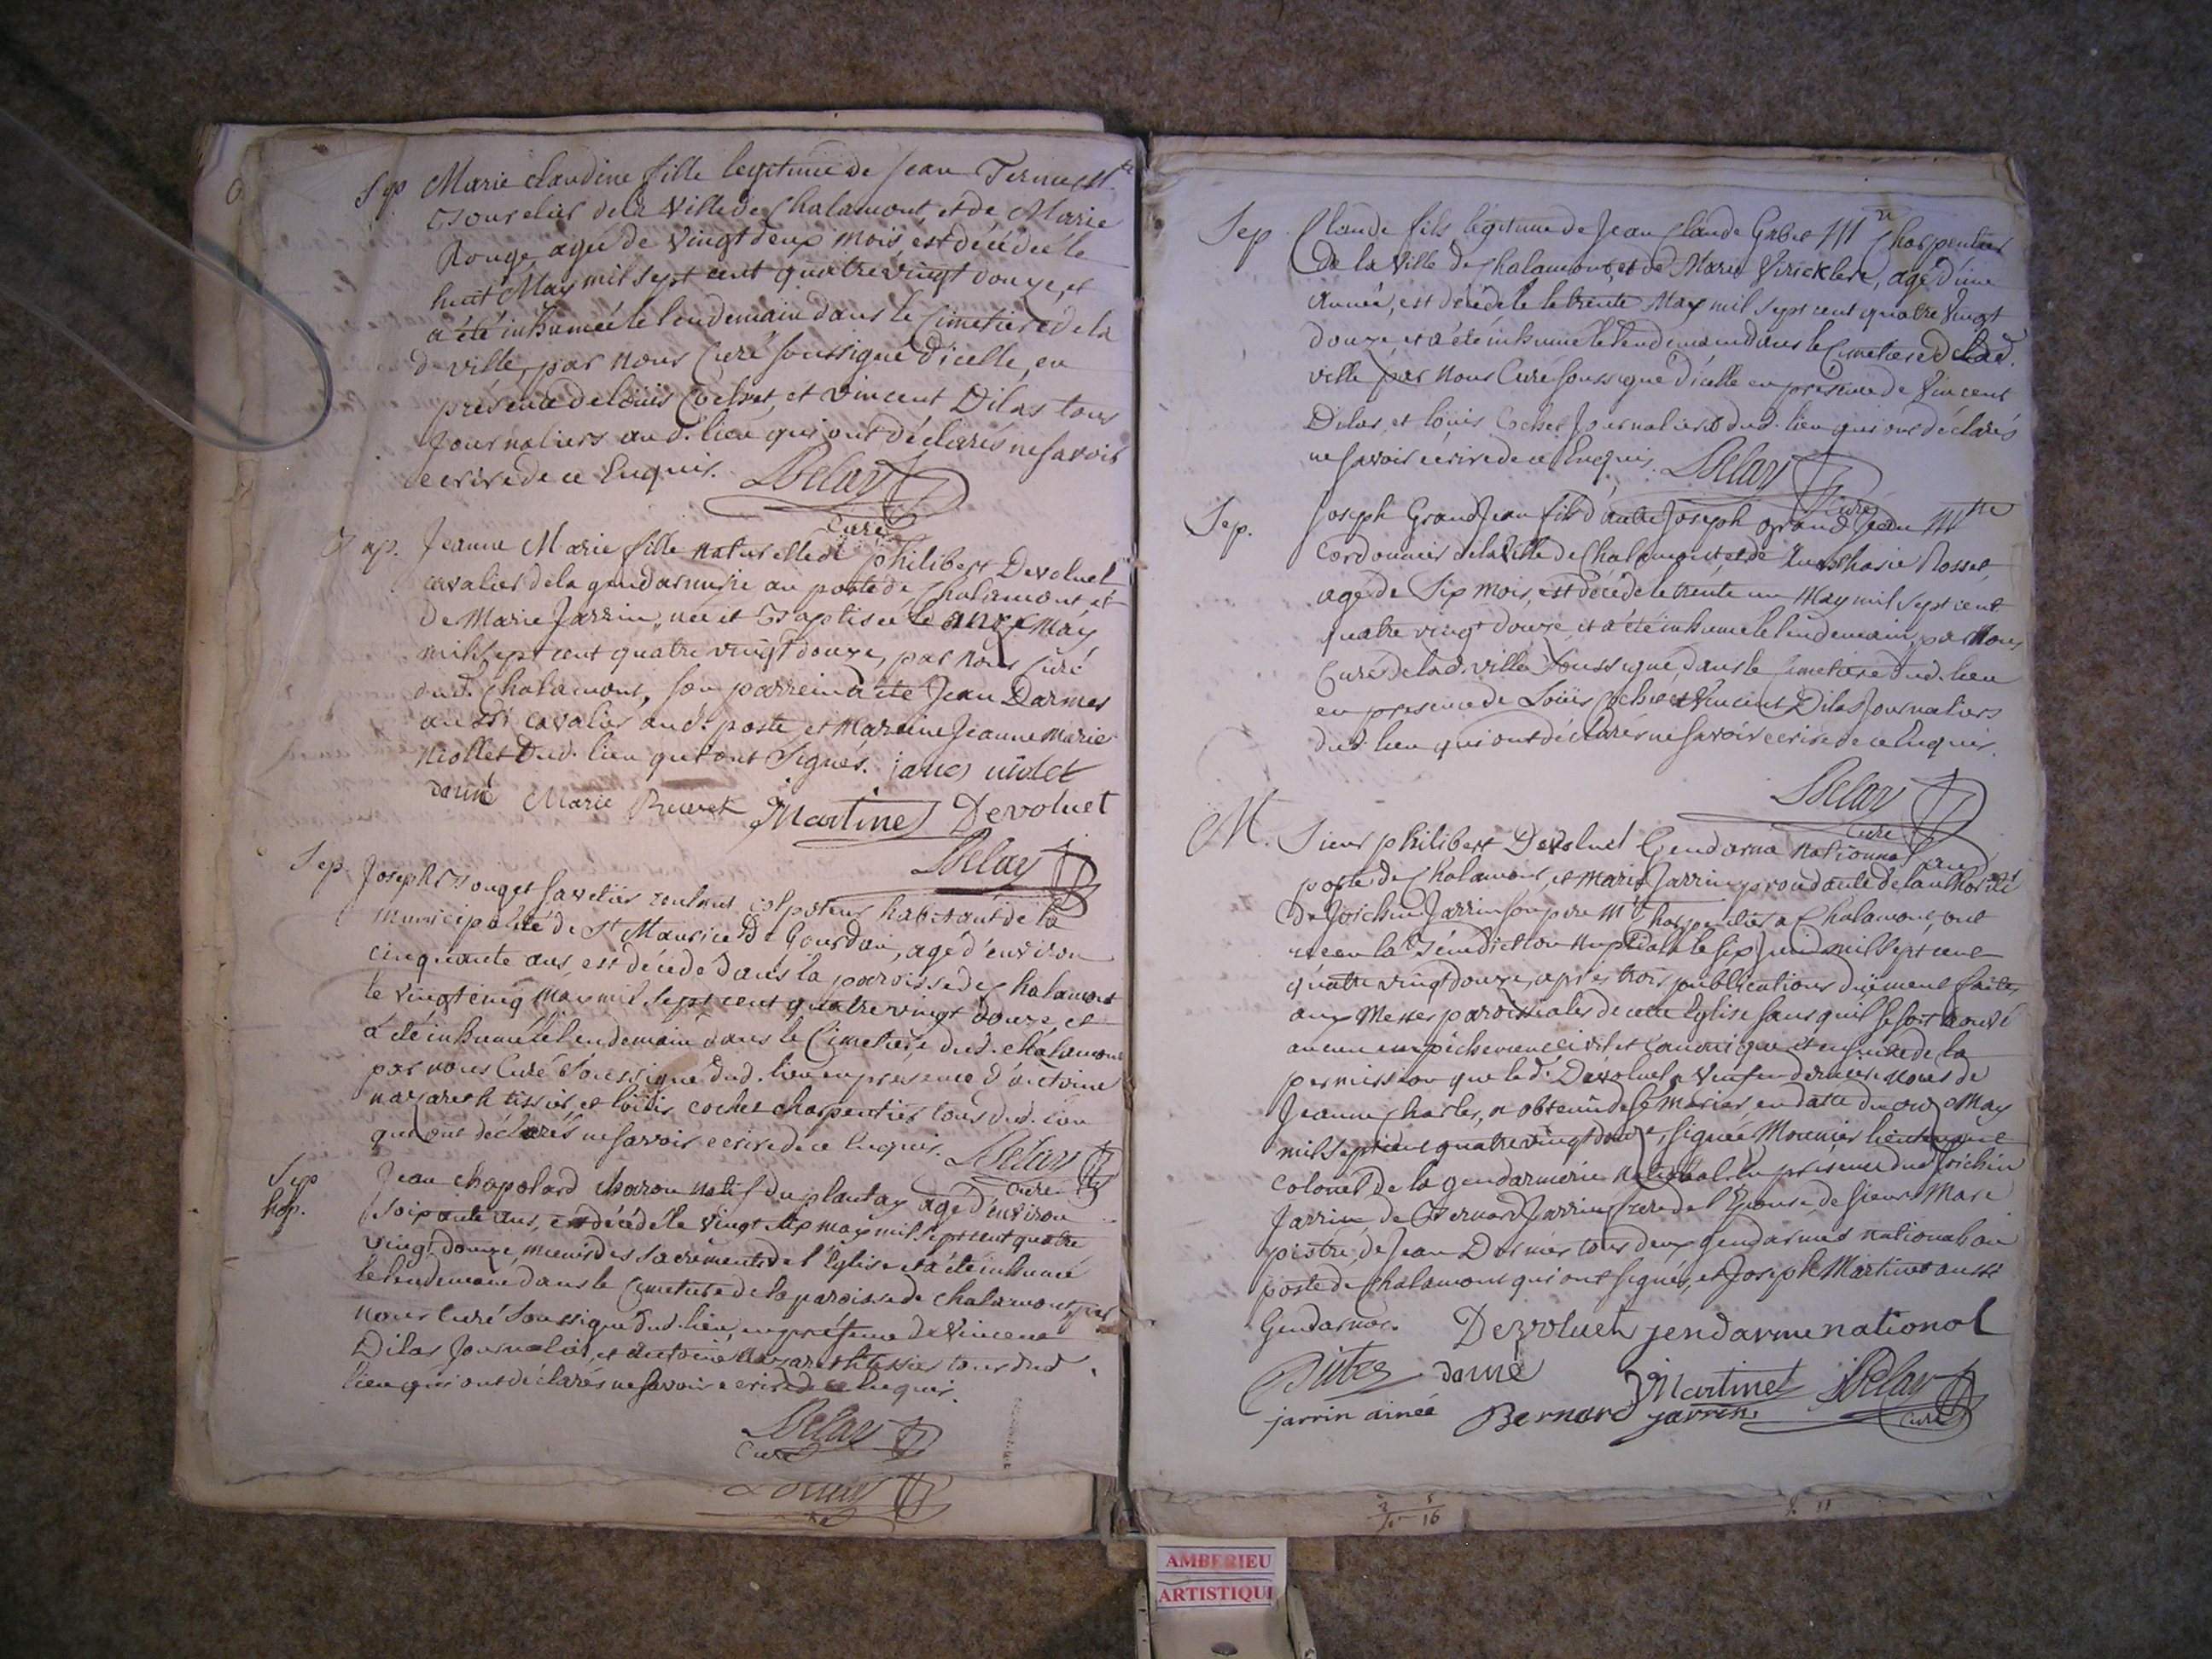 Sep Marie Claudine fille legitime de Jean Terme Mtre
Bourelier de la Ville de Chalamont, et de Marie
Rouge, agée de vingt deux mois est décédée le
huit May mil sept cent quatre vingt douze, et
a été inhumée le lendemain dans le Cimetiere de la
d. ville, par nous Curé soussigné d'icelle, en
présence de Loüis Cochet, et Vincent Dilas tous
Journaliers aud. lieu qui ont déclarés ne savoir
ecrire de ce Enquis. Delay
Curé
Bap. Jeanne Marie fille naturelle de philibert Devoluet
cavalier de la gendarmerie au poste de Chalamont et
de Marie Jarrin, née et Baptisée le onze May
mil sept cent quatre vingt douze, par nous Curé
dud. Chalamont, son parrein a été Jean Darmes
aussi cavalier aud. poste, et Marreine Jeanne Marie
Niollet dud. lieu qui ont Signés.
Marie Martinet Devoluet
Delay
Sep. Joseph Bouget savetier colporteur habitant de la
municipalité de St Maurice de Gourdan, agé d'environ
cinquante ans, est décédé dans la paroisse de Chalamont
le vingt cinq May mil sept cent quatre vingt douze et
a été inhumé le lendemain dans le Cimetiere dud. Chalamont
par nous Curé Soussigné dud. lieu en presence d'antoine
nazareth tissier, et Loüis cochet charpentier tous dud. lieu
qui ont déclarés ne savoir ecrire de ce Enquis. Delay
Curé
Sep
hop. Jean Chapolard charon natif du plantay agé d'environ
Soixante ans, est décédé le vingt six may mil sept cent quatre
vingt douze, muni des Sacrements de l'Eglise et a été inhumé
le lendemain dans le Cimetiere de la paroisse de Chalamont, par
nous Curé Soussigné dud. lieu, en présence de Vincent
Dilas Journalier, et antoine nazareth tissier tous dud.
lieu qui ont déclarés ne savoir ecrire de ce Enquis.
Delay
Curé
Sep Claude fils légitime de Jean Claude Gabet Mtre Charpentier
de la Ville de Chalamont, et de Marie, agé d'une
Année, est décédé le trente May mil sept cent quatre Vingt
douze, et a été inhumé le lendemain dans le Cimetiere de lad.
ville par Nous Curé soussigné d'icelle en présence de Vincent
Dilas, et Loüis Cochet Journaliers dud. lieu qui ont déclarés
ne savoir ecrire de ce Enquis. Delay
Curé
Sep. Joseph GrandJean fils d'autre Joseph grand Jean Mtre
Cordonnier de la Ville de Chalamont, et de Anasthasie Rosset
agé de Six mois, est décédé le trente un May mil sept cent
quatre vingt douze, et a été inhumé le lendemain, par Nous
Curé de lad. ville Soussigné, dans le Cimetiere dud. lieu
en presence de Loüis Cochet et Vincent Dilas Journaliers
dud. lieu qui ont déclarés ne savoir ecrire de ce Enquis.
Delay
Curé
M. Sieur philibert Devoluet Gendarme national au
poste de Chalamont, et Marie Jarrin procedante de l'authorité
de Joachin Jarrin son pere Mtre Charpentier a Chalamont, ont
recu la Bénédiction Nuptiale le six Juin mil sept cent
quatre vingt douze, apres trois publications düement faites
aux Messes paroissiales de cette Eglise sans qu'il se soit trouvé
aucun empechement civil et canonique et ensuite de la
permission que led. Devoluet Veuf en dernieres noces de
Jeanne Charles, a obtenüe de se Marier, en datte du onze May
mil sept cent quatre vingt douze, signée Mounier lieutenant
colonel de la gendarmerie nationale. En présence dud. Joichin
Jarrin, de Bernard Jarrin frere de l'Epouse de sieurs Marc
pistre, de Jean Darmes tous deux gendarmes nationals au
poste de Chalamont qui ont signés, et Joseph Martinet aussi
Gendarme. Devoluet jendarme national
Martinet Delay
Curé
jarrin ainée Bernard jarrin
3 5
16
AMBERIEU
ARTISTIQU